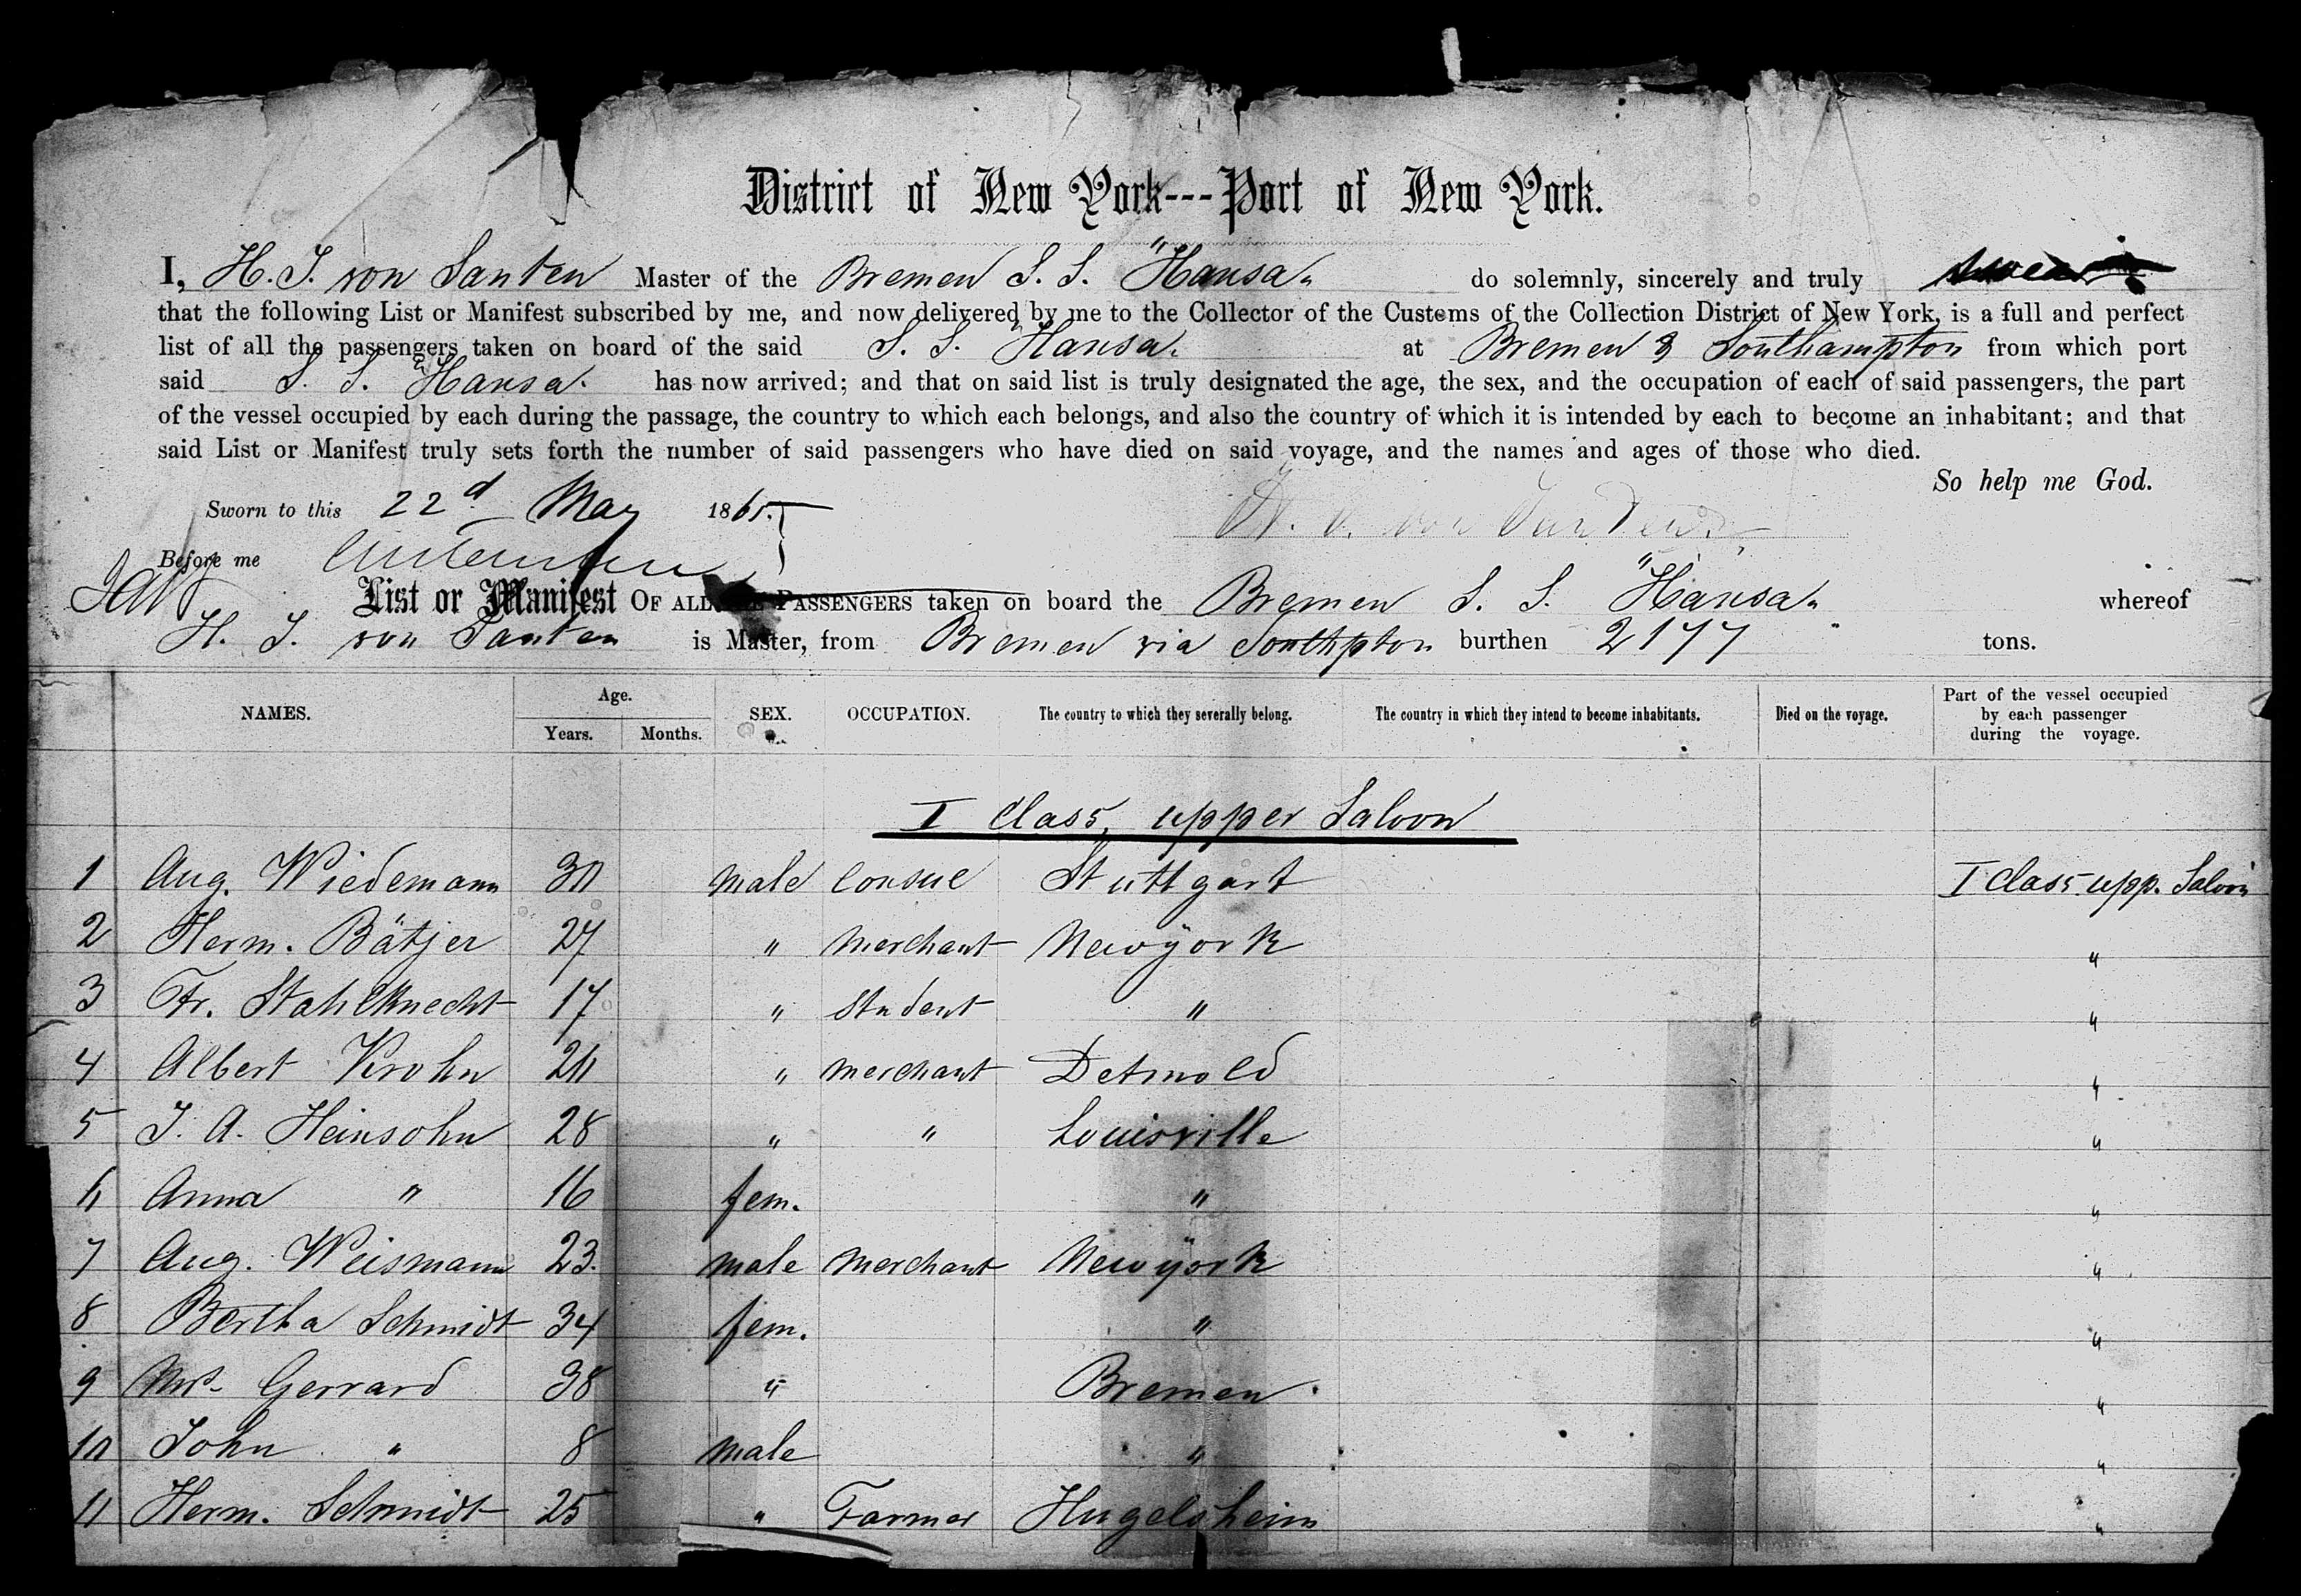 District of New York---Port of New York.
I, H. J. von Santen Master of the Bremen S. S. "Hansa" do solemnly, sincerely and truly swear
that the following List or Manifest subscribed by me, and now delivered by me to the Collector of the Customs of the Collection District of New York, is a full and perfect
list of all the passengers taken on board of the said S. S. "Hansa" at Bremen & Southampton from which port
said S. S. "Hansa" has now arrived; and that on said list is truly designated the age, the sex, and the occupation of each of said passengers, the part
of the vessel occupied by each during the passage, the country to which each belongs, and also the country of which it is intended by each to become an inhabitant; and that
said List or Manifest truly sets forth the number of said passengers who have died on said voyage, and the names and ages of those who died.
So help me God.
Sworn to this 22d May 1865.
H. J. von Santen
Before me
List or Manifest OF ALL THE PASSENGERS taken on board the Bremen S. S. "Hansa" whereof
H. J. von Santen is Master, from Bremen via Southpton burthen 2177 tons.
NAMES. Age. Years. Months. SEX. OCCUPATION. The country to which they severally belong. The country in which they intend to become inhabitants. Died on the voyage. Part of the vessel occupied by each passenger during the voyage.
I Class, upper Saloon
1 Aug. Wiedemann 30 male Consul Stuttgart I Class upp. Saloon
2 Herm. Bätjer 27 " merchant Newÿork "
3 Fr. Stahlknecht 17 " student " "
4 Albert Krohn 20 " merchant Detmold "
5 J. A. Heinsohn 28 " " Louisville "
6 Anna " 16 fem. " "
7 Aug. Weismann 23. male merchant Newÿork "
8 Bertha Schmidt 34 fem. " "
9 Mrs. Gerrard 38 " Bremen "
10 John " 8 male " "
11 Herm. Schmidt 25 " Farmer Hugelsheim "